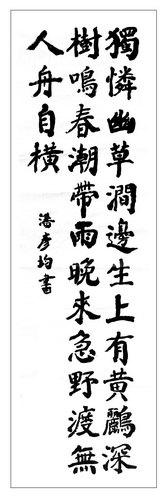 獨憐幽草澗邊生上有黃鸝深
樹鳴春潮帶雨晚來急野渡無
人舟自橫
潘彥均書